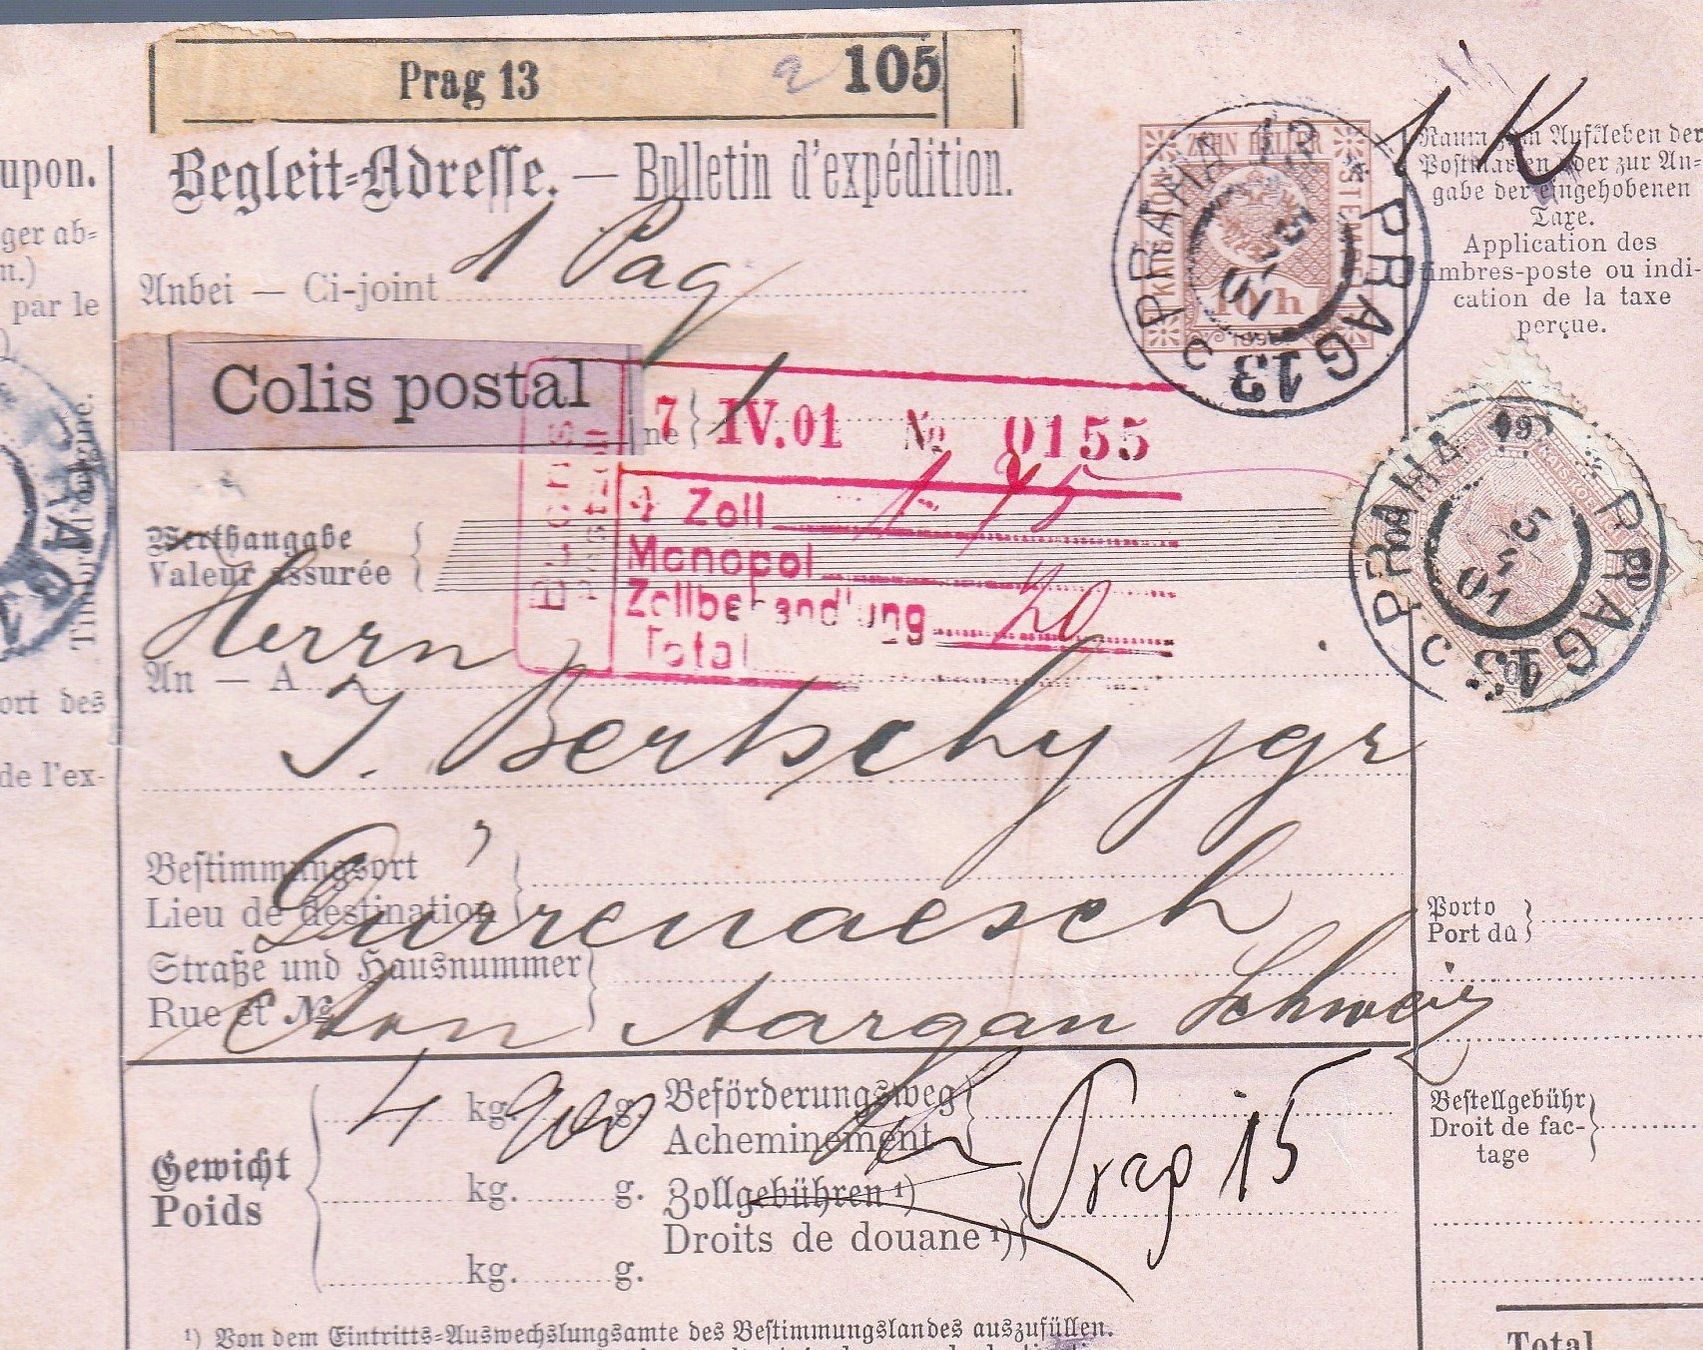 Prag 13 a 105
upon.
ger ab=
n.)
par le
Timbre
ort des
de l'ex-
Begleit=Adresse. — Bulletin d'expédition.
Anbei — Ci-joint 1 Pag
Colis postal
7 IV.01 № 0155
Zoll 1 75
Monopol
Zollbehandlung 20
Total
Werthangabe
Valeur assurée
Herrn
An — A
J. Bertschy jgr
Bestimmungsort
Lieu de destination
Dürrenaesch
Straße und Hausnummer
Rue et №
Aargau Schweiz
Gewicht
Poids
4 kg. 900 g.
kg. g.
kg. g.
Beförderungsweg
Acheminement
Zollgebühren ¹)
Droits de douane ¹)
Prag 15
¹) Von dem Eintritts=Auswechslungsamte des Bestimmungslandes auszufüllen.
ZEHN HELLER
10 h
PRAG 13 PRAHA 13
1 K
Raum zum Aufkleben der
Postmarken oder zur An=
gabe der eingehobenen
Taxe.
Application des
timbres-poste ou indi-
cation de la taxe
perçue.
PRAG 13 PRAHA
5 4 01
Porto
Port dû
Bestellgebühr
Droit de fac-
tage
Total